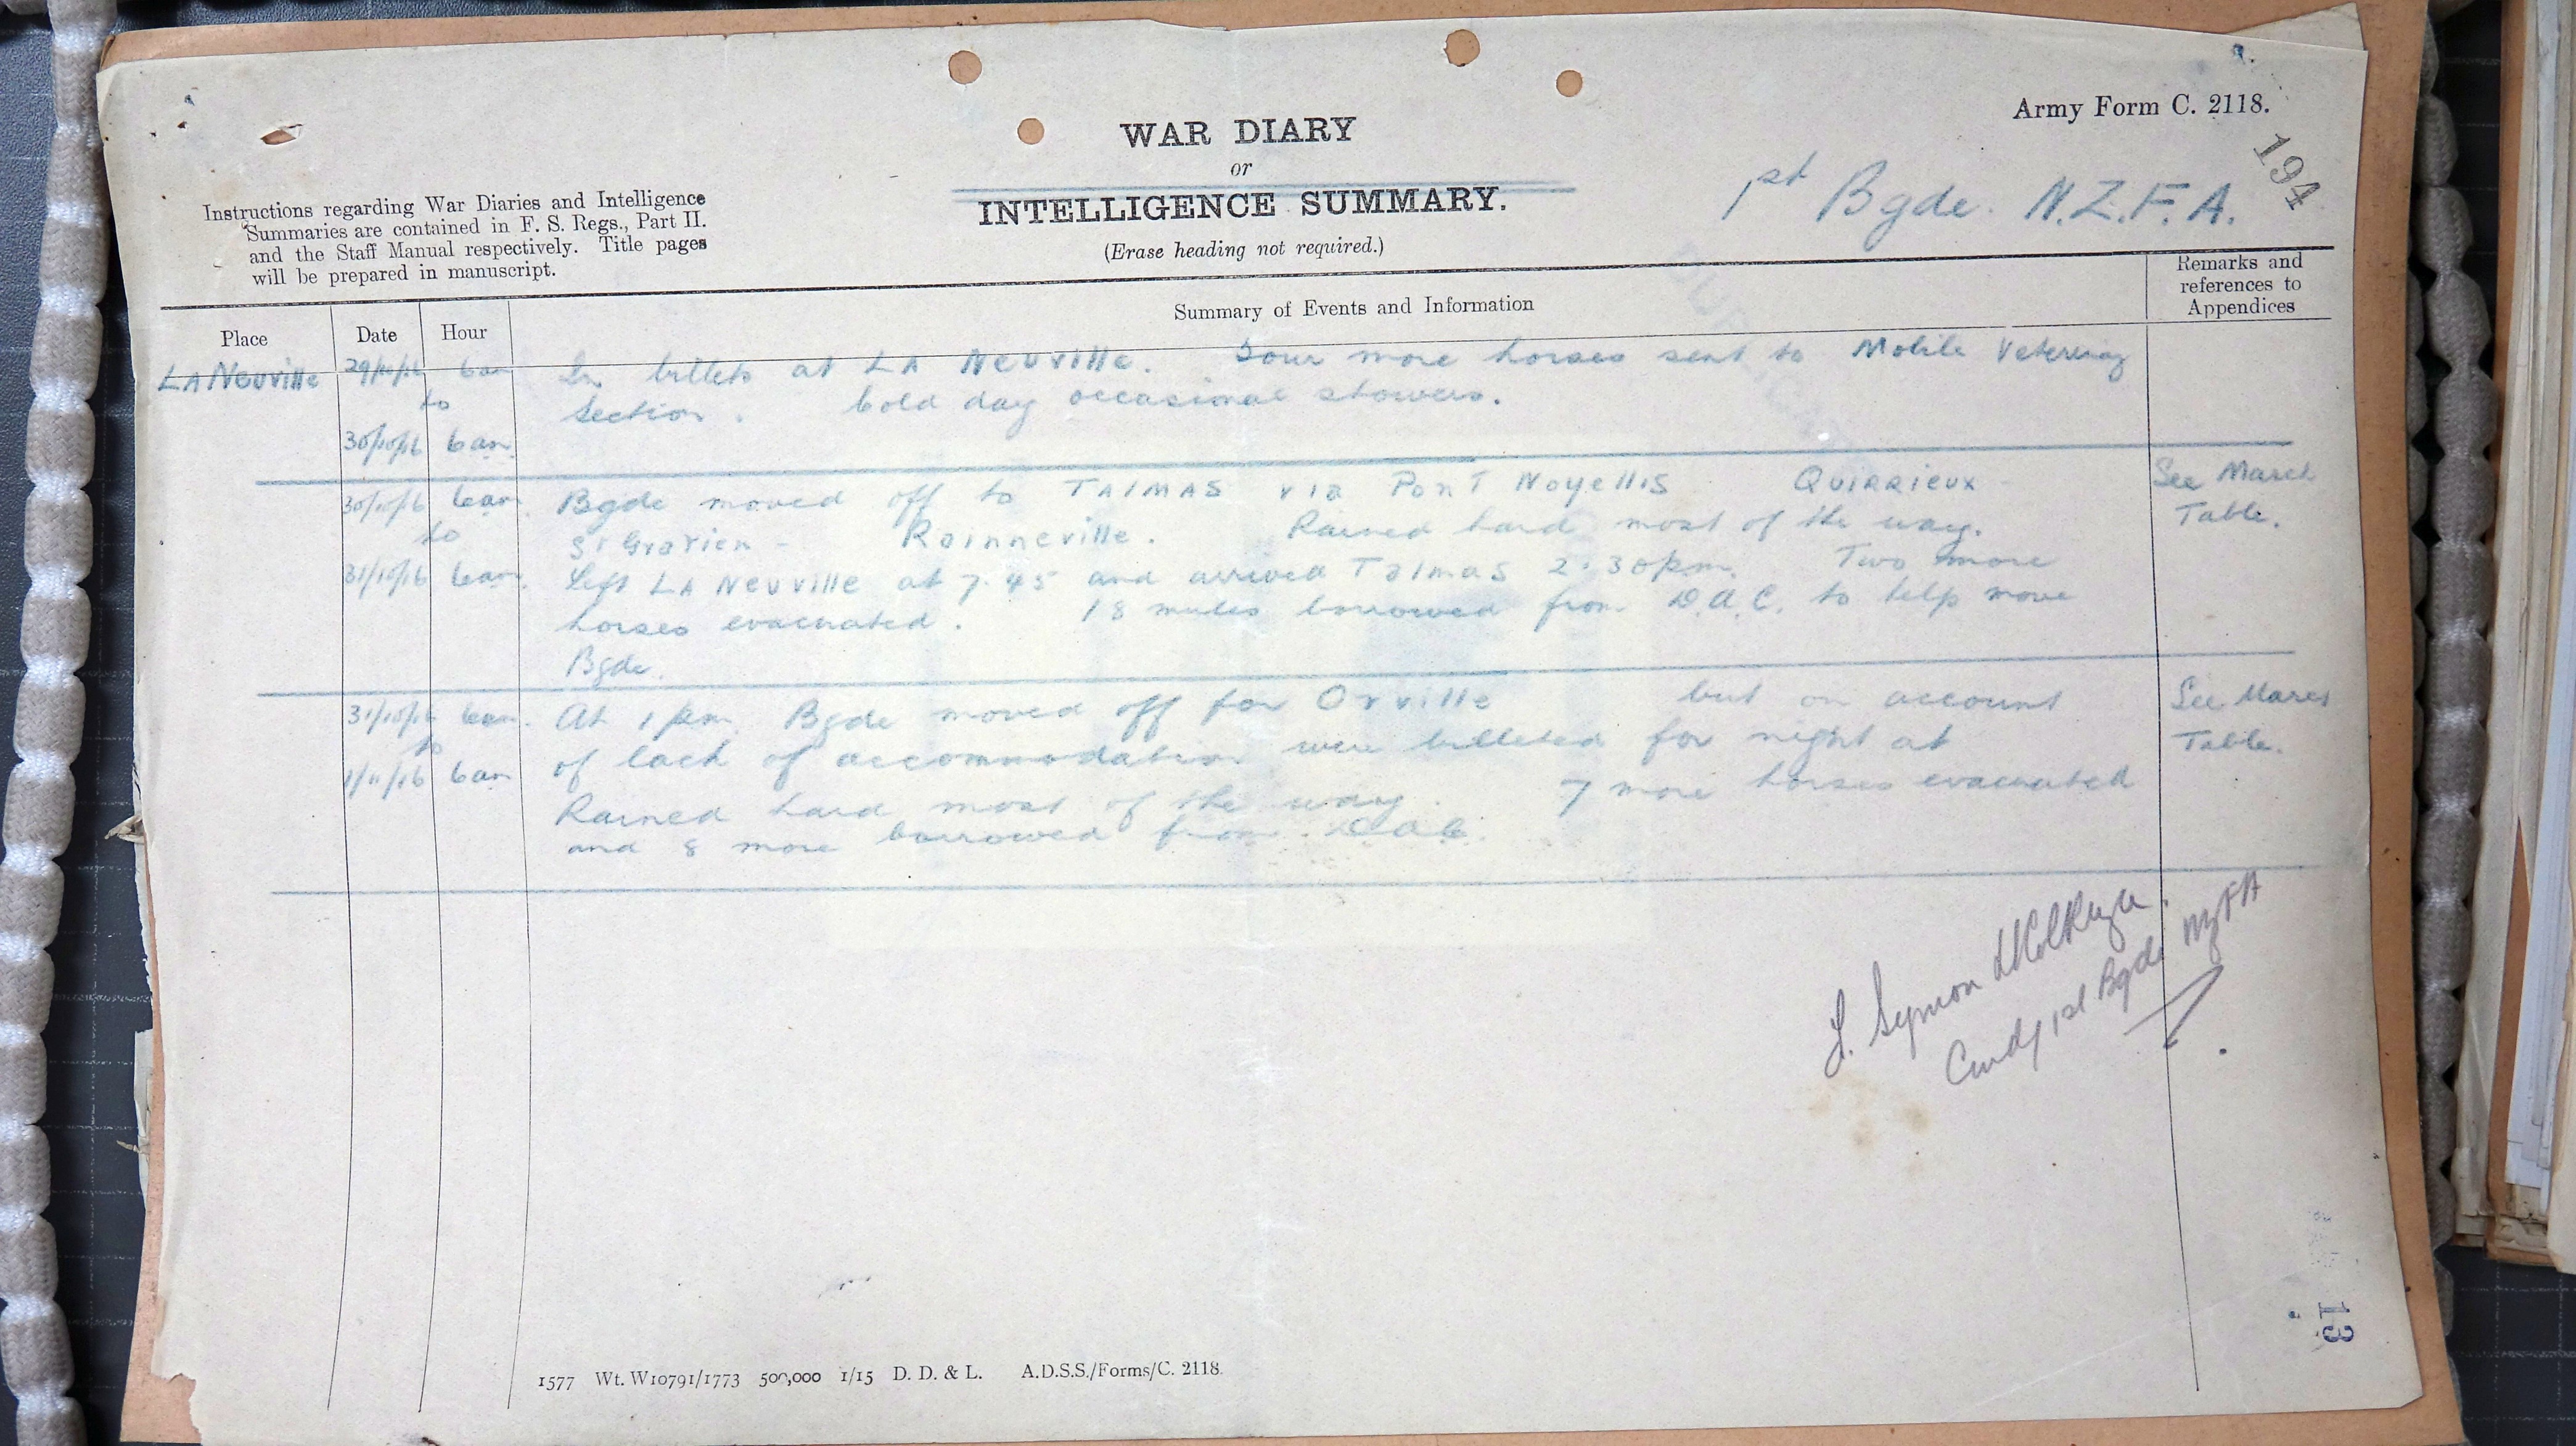 Army Form C. 2118.
194
WAR DIARY
or
INTELLIGENCE SUMMARY.
(Erase heading not required.)
1st Bgde. N.Z.F.A.
Instructions regarding War Diaries and Intelligence
Summaries are contained in F. S. Regs., Part II.
and the Staff Manual respectively. Title pages
will be prepared in manuscript.
Place Date Hour Summary of Events and Information Remarks and references to Appendices
LA Neuville 29/10/16 6am In billets at LA Neuville. Four more horses sent to Mobile Veterinary
to Section. Cold day occasional showers.
30/10/16 6am
30/10/16 6am Bgde moved off to TAlMAS via PonT Noyellis QUIRRIEUX See March
to St Gratien - Rainneville. Rained hard most of the way. Table.
31/10/16 6am Left LA Neuville at 7.45 and arrived Talmas 2.30pm. Two more
horses evacuated. 18 mules borrowed from D.A.C. to help move
Bgde.
31/10/16 6am At 1pm Bgde moved off for Orville but on account See March
to of lack of accommodation were billeted for night at Table.
1/11/16 6am Rained hard most of the way. 7 more horses evacuated
and 8 more borrowed from D.A.C.
Symon
Cmdg 1st Bgde NZFA
13
1577 Wt. W10791/1773 500,000 1/15 D. D. & L. A.D.S.S./Forms/C. 2118.